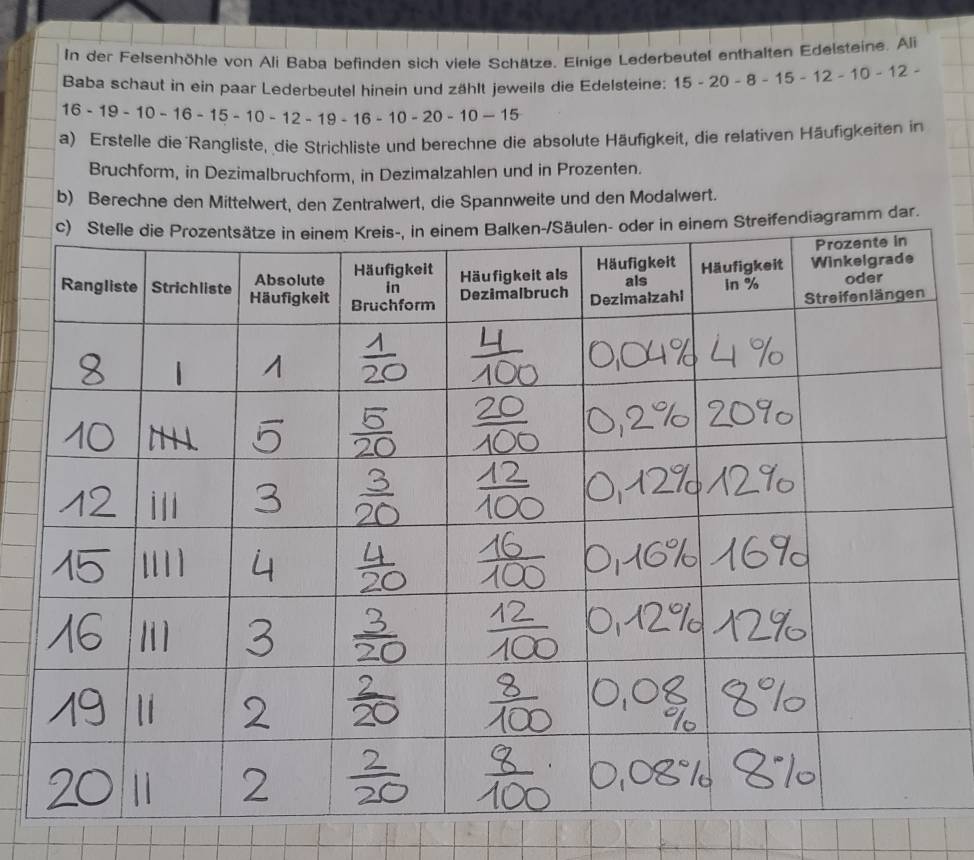 In der Felsenhöhle von Ali Baba befinden sich viele Schätze. Einige Lederbeutel enthalten Edelsteine. Ali
Baba schaut in ein paar Lederbeutel hinein und zählt jeweils die Edelsteine: 15 - 20 - 8 - 15 - 12 - 10 - 12 -
16 - 19 - 10 - 16 - 15 - 10 - 12 - 19 - 16 - 10 - 20 - 10 – 15
a) Erstelle die Rangliste, die Strichliste und berechne die absolute Häufigkeit, die relativen Häufigkeiten in
Bruchform, in Dezimalbruchform, in Dezimalzahlen und in Prozenten.
b) Berechne den Mittelwert, den Zentralwert, die Spannweite und den Modalwert.
c) Stelle die Prozentsätze in einem Kreis-, in einem Balken-/Säulen- oder in einem Streifendiagramm dar.
Rangliste Strichliste Absolute Häufigkeit Häufigkeit in Bruchform Häufigkeit als Dezimalbruch Häufigkeit als Dezimalzahl Häufigkeit in % Prozente in Winkelgrade oder Streifenlängen
8 | 1 1/20 4/100 0,04% 4%
10 |||| 5 5/20 20/100 0,2% 20%
12 ||| 3 3/20 12/100 0,12% 12%
15 |||| 4 4/20 16/100 0,16% 16%
16 ||| 3 3/20 12/100 0,12% 12%
19 || 2 2/20 8/100 0,08% 8%
20 || 2 2/20 8/100 0,08% 8%